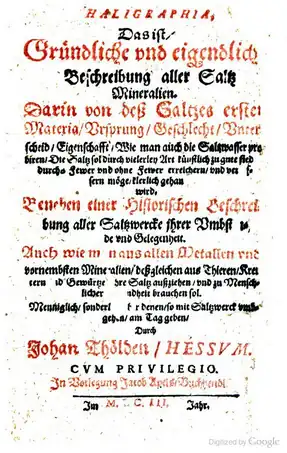 HALIGRAPHIA,
Das ist/
Gründliche vnd eigendliche
Beschreibung aller Saltz
Mineralien.
Darin von deß Saltzes erster
Materia/ Vrsprung/ Geschlecht/ Vnter
scheid/ Eigenschafft/ Wie man auch die Saltzwasser pro
biren/ Die Saltz sol durch vielerley Art künstlich zu gute sied
durchs Fewer vnd ohne Fewer
wird,
Beneben einer Historischen Beschrei
bung aller Saltzwercke ihrer Vmbst
de vnd Gelegenheit.
Auch wie man aus allen Metallen vnd
vornembsten Mineralien/ deßgleichen aus Thieren/ Kreu
tern vnd Gewürtze ihre Saltz außziehen/ vnd zu Mensch
licher brauchen sol.
Menniglich/ denen/ so mit Saltzwerck
am Tag geben/
Durch
Johan Thölden/ HESSVM.
CVM PRIVILEGIO.
In Vorlegung Jacob Apels/ Buchhendl.
Im Jahr.
Digitized by Google